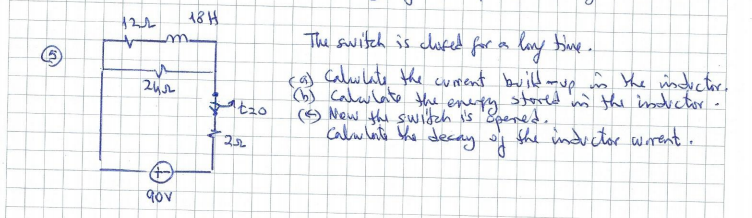 12Ω 18H
The switch is closed for a long time.
5
24Ω
(a) Calculate the current build-up in the inductor.
(b) Calculate the energy stored in the inductor.
t=0
(c) Now the switch is opened.
2Ω
Calculate the decay of the inductor current.
+ -
90V